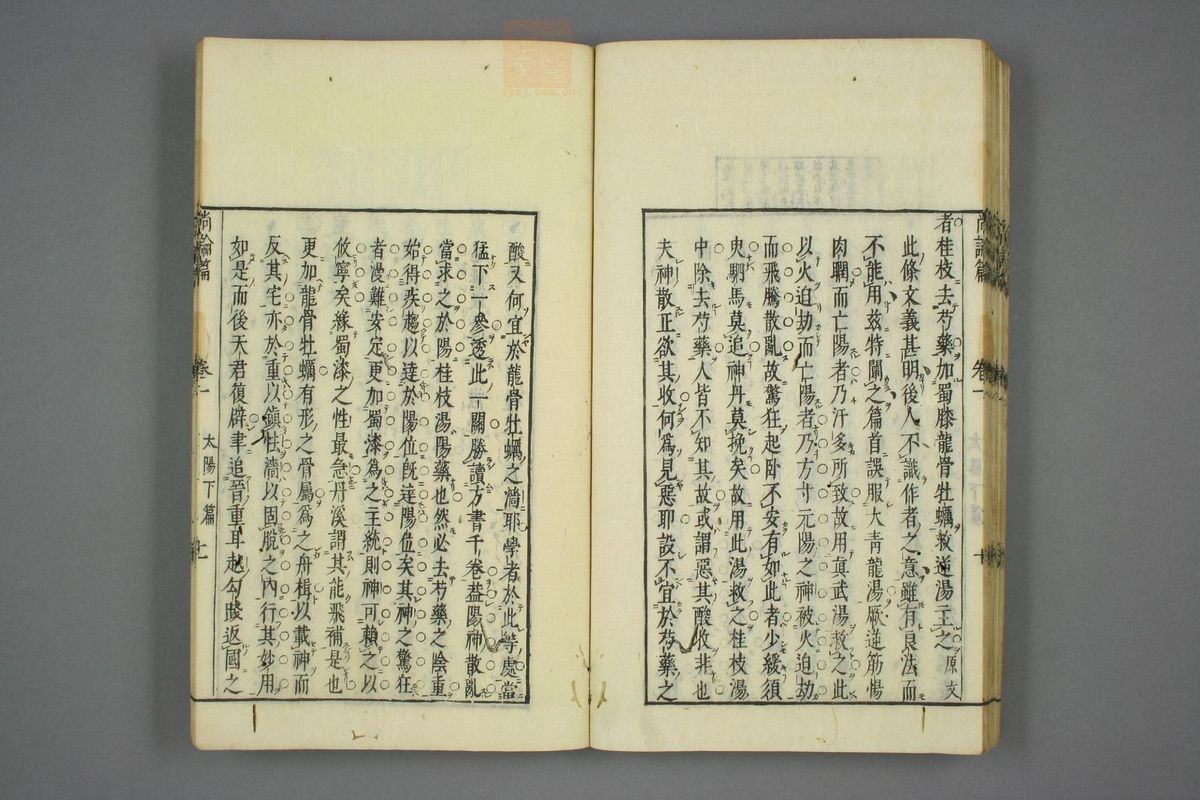 者桂枝去芍藥加蜀膝龍骨牡蠣救逆湯主之 原文
此條文義甚明後人不識作者之意雖有良法而
不能用茲特闡之篇首誤服大青龍湯厥逆筋惕
肉瞤而亡陽者乃汗多所致故用眞武湯救之此
以火迫劫而亡陽者乃方寸元陽之神被火迫劫
而飛騰散亂故驚狂起卧不安有如此者少緩須
臾駟馬莫追神丹莫挽矣故用此湯救之桂枝湯
中除去芍藥人皆不知其故或謂惡其酸收非也
夫神散正欲其收何爲見惡耶設不宜於芍藥之
尚論篇 卷一 太陽下篇 十
酸又何宜於龍骨牡蠣之濇耶學者於此等處當
猛下一參透此一關勝讀方書千卷葢陽神散亂
當求之於陽桂枝湯陽藥也然必去芍藥之陰重
始得疾趨以達於陽位旣達陽位矣其神之驚狂
者漫難安定更加蜀漆爲之主統則神可賴之以
攸寧矣緣蜀漆之性最急丹溪謂其能飛補是也
更加龍骨牡蠣有形之骨屬爲之舟楫以載神而
反其宅亦於重以鎮怯濇以固脫之內行其妙用
如是而後天君復辟聿追晉重耳越勾踐返國之
尚論篇 卷一 太陽下篇 十一
zysj.com.cn